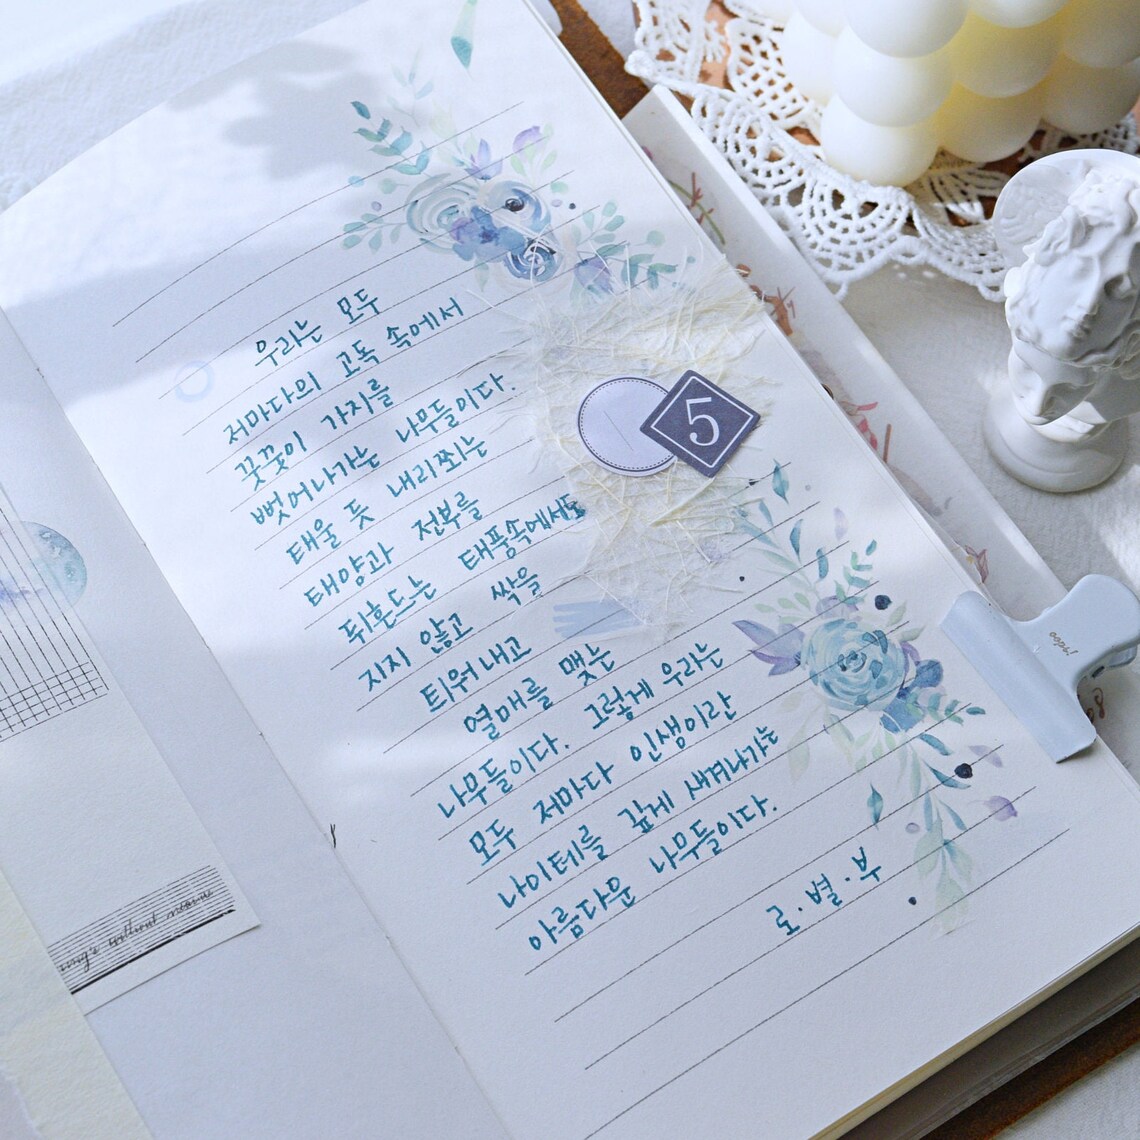 우리는 모두
저마다의 고독 속에서
꽃꽂이 가지를
뻗어나가는 나무들이다.
태울 듯 내리쬐는
태양과 전부를
뒤흔드는 태풍속에서도
지지 않고 싹을
틔워내고
열매를 맺는
나무들이다. 그렇게 우리는
모두 저마다 인생이란
나이테를 깊게 새겨나가는
아름다운 나무들이다.
로·별·부
5
oophi
without